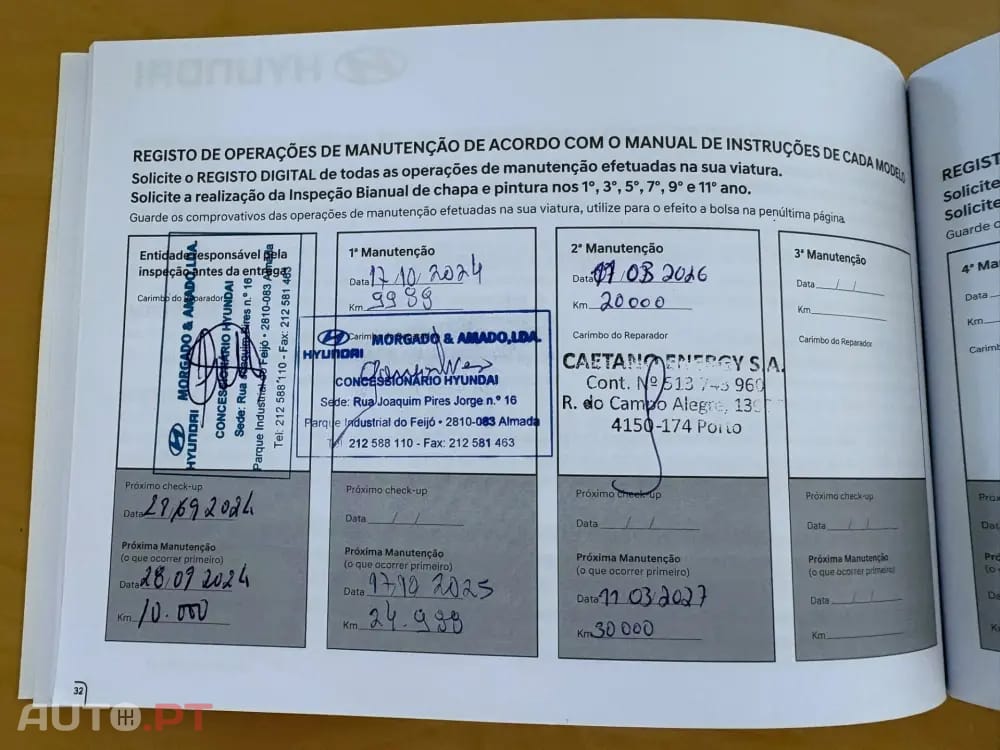 HYUNDAI
REGISTO DE OPERAÇÕES DE MANUTENÇÃO DE ACORDO COM O MANUAL DE INSTRUÇÕES DE CADA MODELO
Solicite o REGISTO DIGITAL de todas as operações de manutenção efetuadas na sua viatura.
Solicite a realização da Inspeção Bianual de chapa e pintura nos 1º, 3º, 5º, 7º, 9º e 11º ano.
Guarde os comprovativos das operações de manutenção efetuadas na sua viatura, utilize para o efeito a bolsa na penúltima página.
Entidade responsável pela
inspeção antes da entrega
Carimbo do Reparador
HYUNDAI MORGADO & AMADO, LDA.
CONCESSIONÁRIO HYUNDAI
Sede: Rua Joaquim Pires n.º 16
Parque Industrial do Feijó • 2810-083 Almada
Tel: 212 588 110 - Fax: 212 581 463
Próximo check-up
Data 28,09 2024
Próxima Manutenção
(o que ocorrer primeiro)
Data 28,09 2024
Km 10.000
1ª Manutenção
Data 17,10,2024
Km 9989
Carimbo do Reparador
HYUNDAI MORGADO & AMADO, LDA.
CONCESSIONÁRIO HYUNDAI
Sede: Rua Joaquim Pires Jorge n.º 16
Parque Industrial do Feijó • 2810-083 Almada
Tel: 212 588 110 - Fax: 212 581 463
Próximo check-up
Data / /
Próxima Manutenção
(o que ocorrer primeiro)
Data 17,10 2025
Km 24.989
2ª Manutenção
Data 11 03 2026
Km 20000
Carimbo do Reparador
CAETANO ENERGY S.A.
Cont. Nº 513 745 960
R. do Campo Alegre,
4150-174 Porto
Próximo check-up
Data / /
Próxima Manutenção
(o que ocorrer primeiro)
Data 11 03 2027
Km 30000
3ª Manutenção
Data / /
Km
Carimbo do Reparador
Próximo check-up
Data / /
(o que ocorrer primeiro)
Data / /
Km
REGIST
Solicite
Solicite
Guarde o
4ª Ma
Data
Km
Carimb
32
AUTO.PT